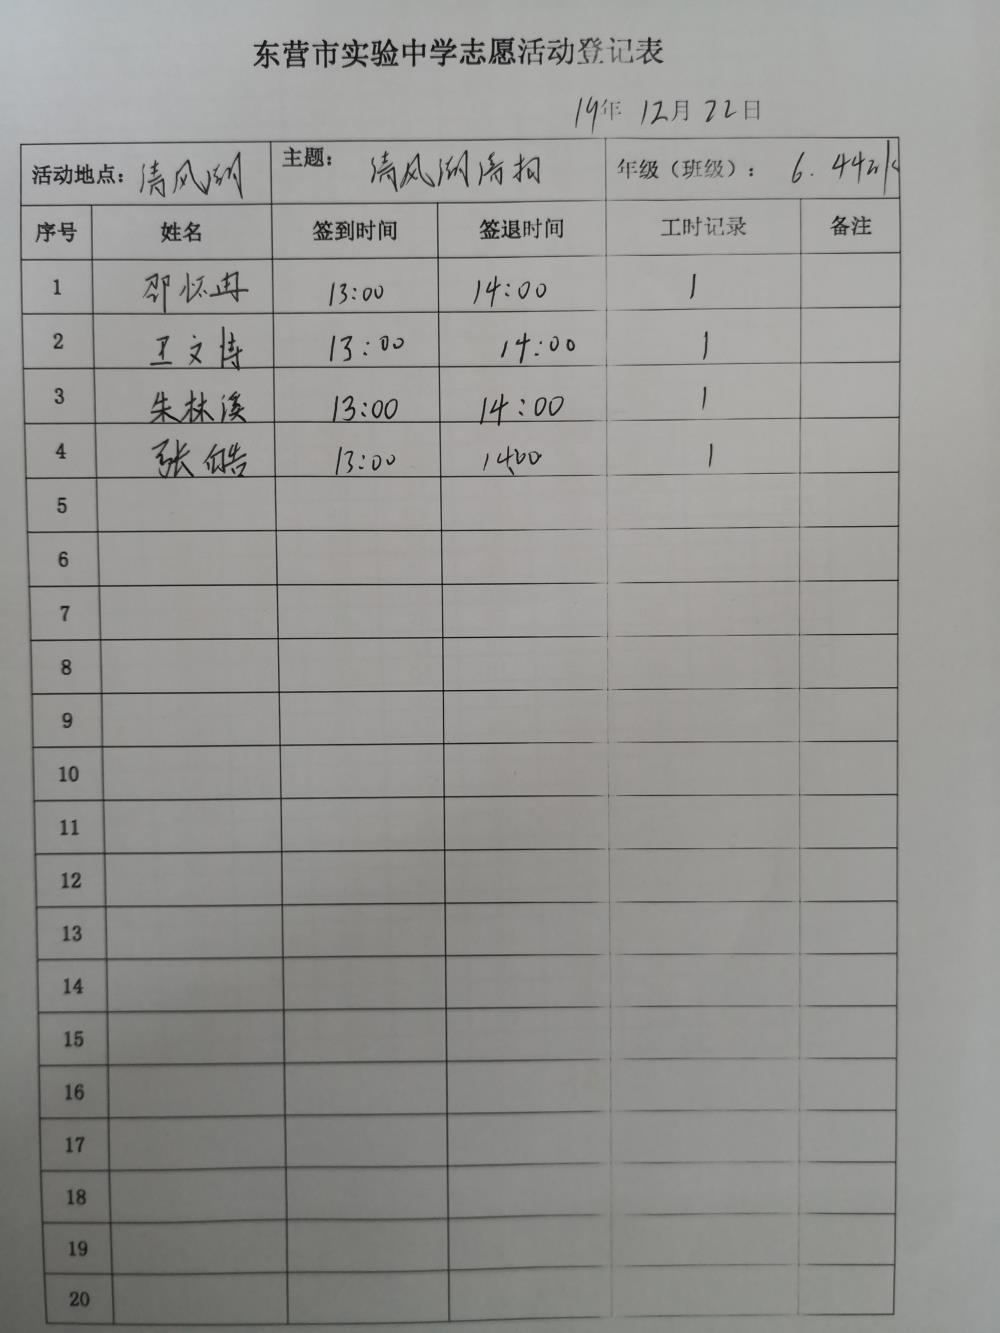 东营市实验中学志愿活动登记表
19年 12月 22日
活动地点：清风湖 主题：清风湖清扫 年级（班级）：6.44
序号 姓名 签到时间 签退时间 工时记录 备注
1 邵怀冉 13:00 14:00 1
2 王文博 13:00 14:00 1
3 朱林溪 13:00 14:00 1
4 张皓 13:00 14:00 1
5
6
7
8
9
10
11
12
13
14
15
16
17
18
19
20